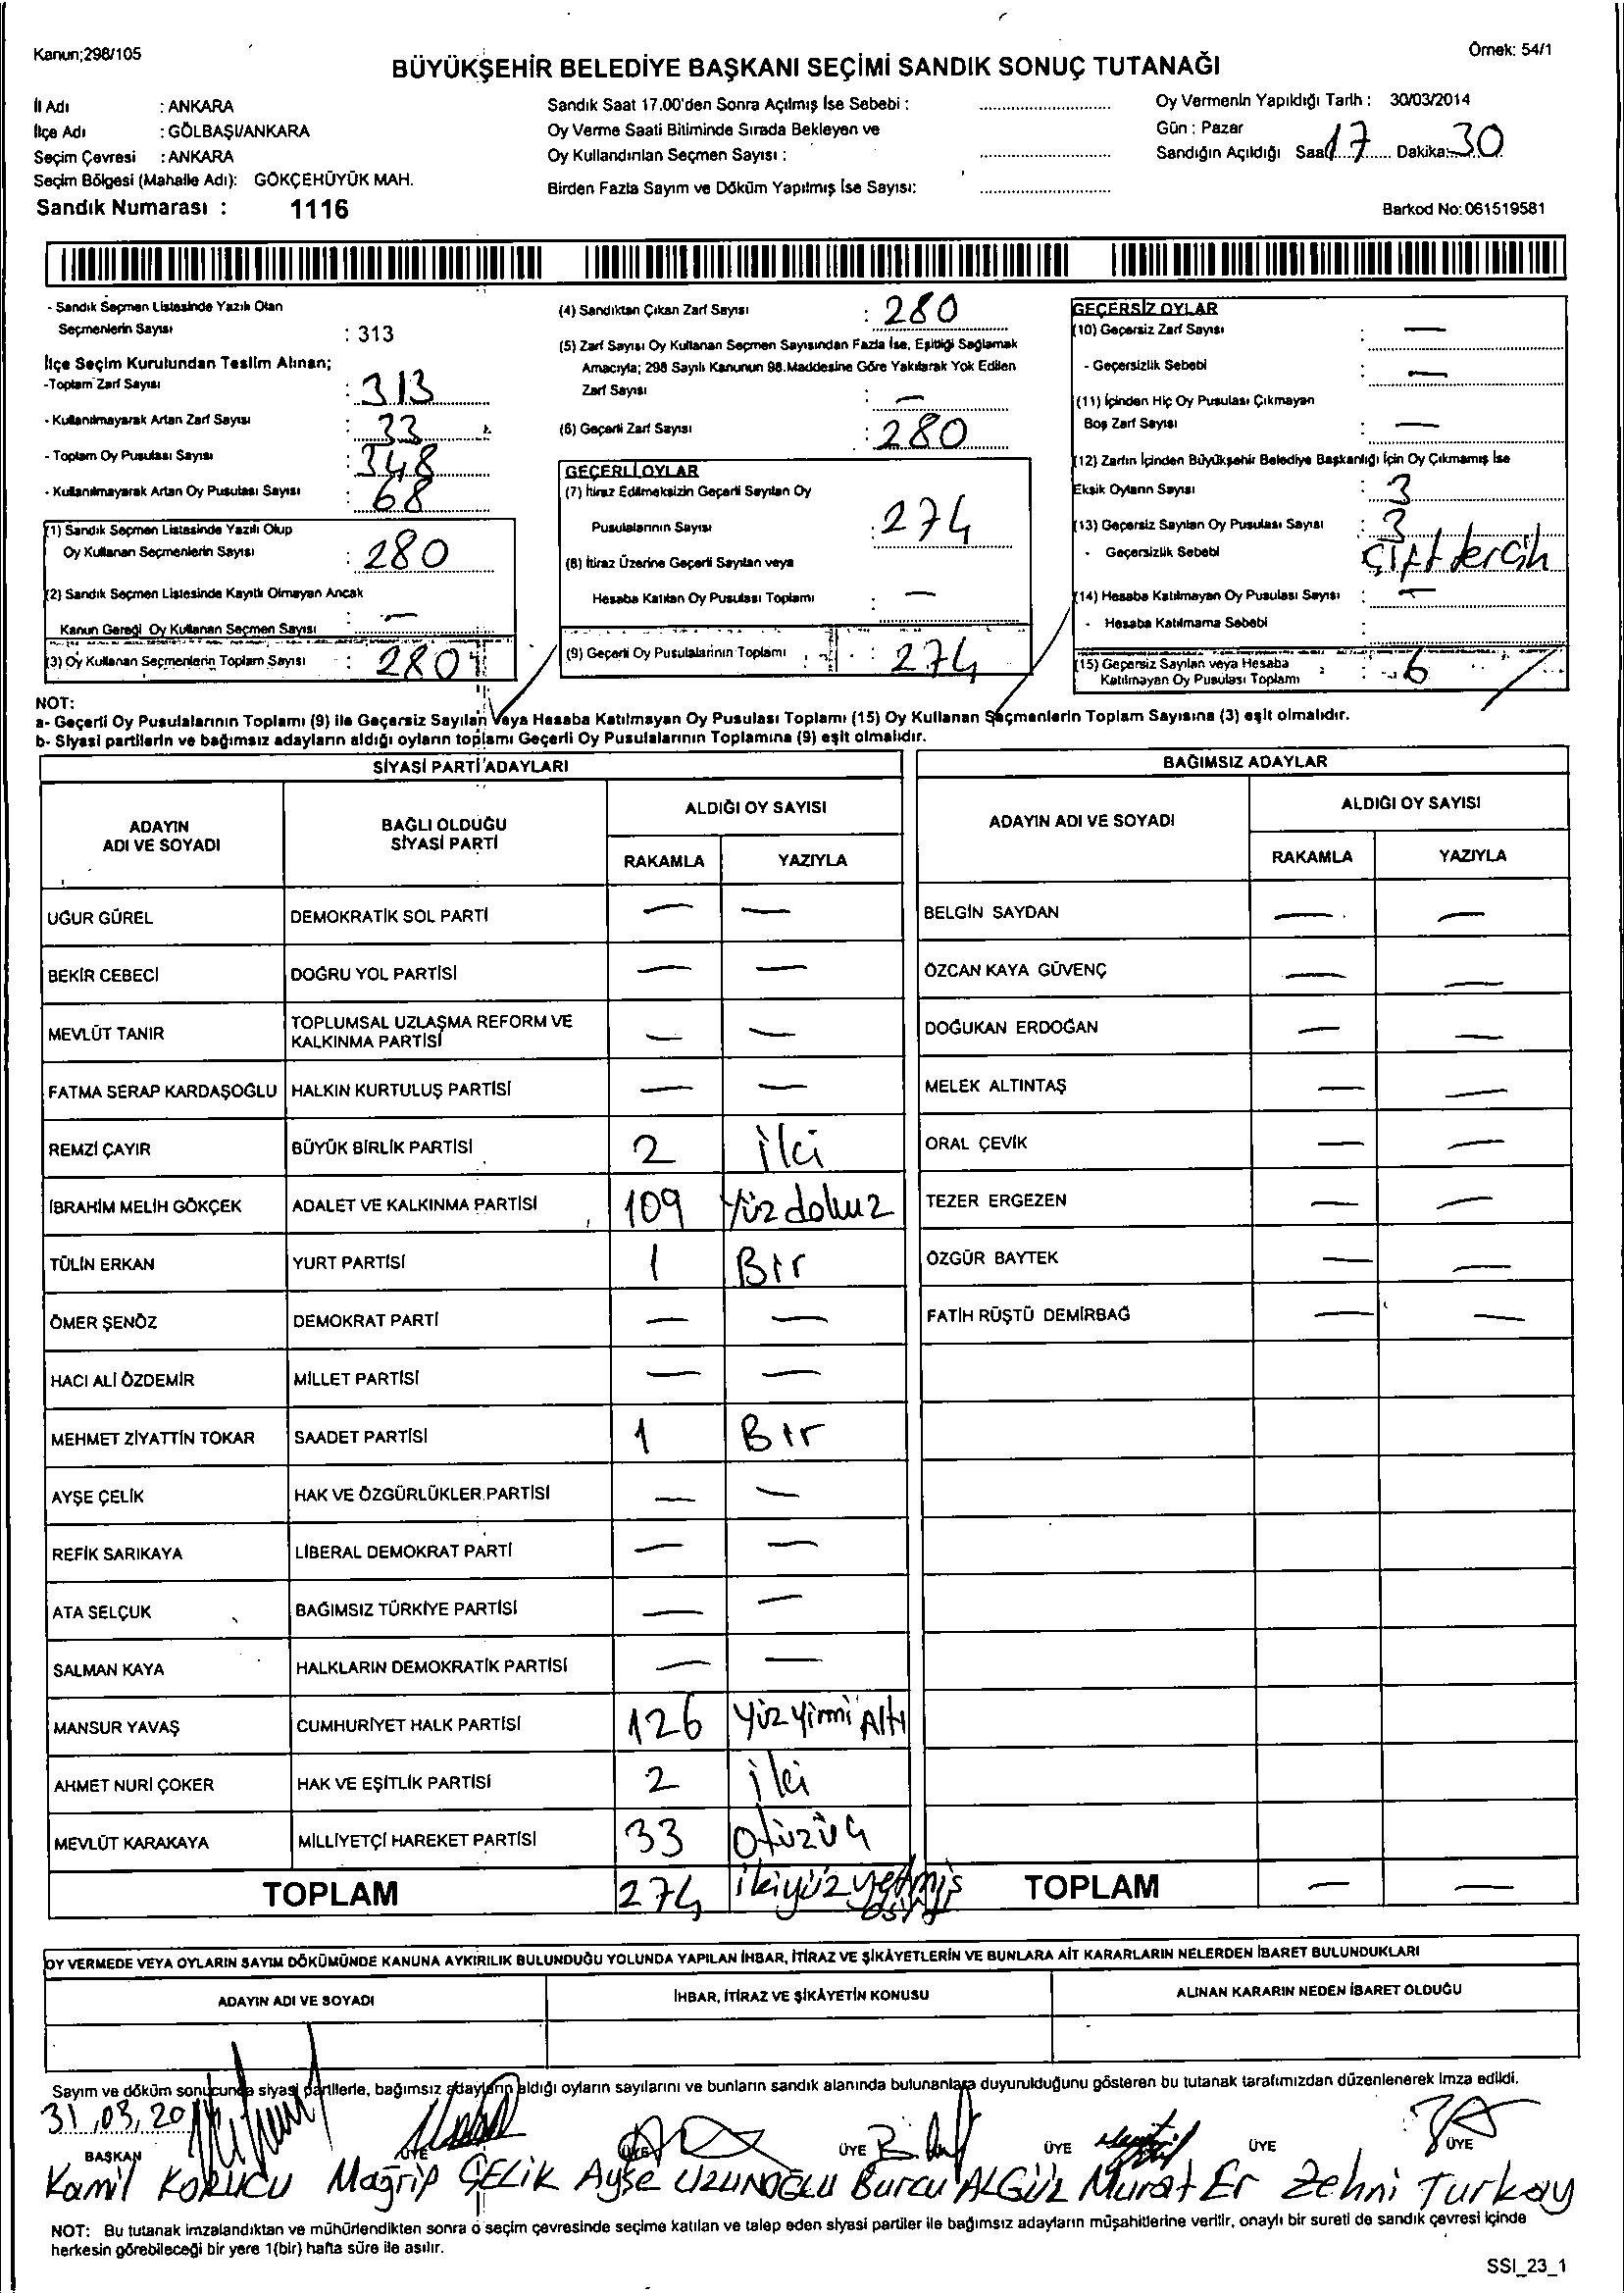 Kanun;298/105
Örnek: 54/1
BÜYÜKŞEHİR BELEDİYE BAŞKANI SEÇİMİ SANDIK SONUÇ TUTANAĞI
İl Adı : ANKARA
İlçe Adı : GÖLBAŞI/ANKARA
Seçim Çevresi : ANKARA
Seçim Bölgesi (Mahalle Adı): GÖKÇEHÜYÜK MAH.
Sandık Numarası : 1116
Sandık Saat 17.00'den Sonra Açılmış İse Sebebi :
Oy Verme Saati Bitiminde Sırada Bekleyen ve
Oy Kullandırılan Seçmen Sayısı :
Birden Fazla Sayım ve Döküm Yapılmış İse Sayısı:
Oy Vermenin Yapıldığı Tarih : 30/03/2014
Gün : Pazar
Sandığın Açıldığı Saat 17 Dakika: 30
Barkod No: 061519581
- Sandık Seçmen Listesinde Yazılı Olan
Seçmenlerin Sayısı : 313
İlçe Seçim Kurulundan Teslim Alınan;
-Toplam Zarf Sayısı : 313
- Kullanılmayarak Artan Zarf Sayısı : 33
- Toplam Oy Pusulası Sayısı : 348
- Kullanılmayarak Artan Oy Pusulası Sayısı : 68
(1) Sandık Seçmen Listesinde Yazılı Olup
Oy Kullanan Seçmenlerin Sayısı : 280
(2) Sandık Seçmen Listesinde Kayıtlı Olmayan Ancak
Kanun Gereği Oy Kullanan Seçmen Sayısı : —
(3) Oy Kullanan Seçmenlerin Toplam Sayısı : 280
(4) Sandıktan Çıkan Zarf Sayısı : 280
(5) Zarf Sayısı Oy Kullanan Seçmen Sayısından Fazla İse, Eşitliği Sağlamak
Amacıyla; 298 Sayılı Kanunun 98.Maddesine Göre Yakılarak Yok Edilen
Zarf Sayısı : —
(6) Geçerli Zarf Sayısı : 280
GEÇERLİ OYLAR
(7) İtiraz Edilmeksizin Geçerli Sayılan Oy
Pusulalarının Sayısı : 274
(8) İtiraz Üzerine Geçerli Sayılan veya
Hesaba Katılan Oy Pusulası Toplamı : —
(9) Geçerli Oy Pusulalarının Toplamı : 274
GEÇERSİZ OYLAR
(10) Geçersiz Zarf Sayısı : —
- Geçersizlik Sebebi : —
(11) İçinden Hiç Oy Pusulası Çıkmayan
Boş Zarf Sayısı : —
(12) Zarfın İçinden Büyükşehir Belediye Başkanlığı İçin Oy Çıkmamış İse
Eksik Oyların Sayısı : 3
(13) Geçersiz Sayılan Oy Pusulası Sayısı : 3
- Geçersizlik Sebebi Çift tercih
(14) Hesaba Katılmayan Oy Pusulası Sayısı : —
- Hesaba Katılmama Sebebi :
(15) Geçersiz Sayılan veya Hesaba
Katılmayan Oy Pusulası Toplamı : 6
NOT:
a- Geçerli Oy Pusulalarının Toplamı (9) ile Geçersiz Sayılan Veya Hesaba Katılmayan Oy Pusulası Toplamı (15) Oy Kullanan Seçmenlerin Toplam Sayısına (3) eşit olmalıdır.
b- Siyasi partilerin ve bağımsız adayların aldığı oyların toplamı Geçerli Oy Pusulalarının Toplamına (9) eşit olmalıdır.
SİYASİ PARTİ ADAYLARI
ADAYIN ADI VE SOYADI BAĞLI OLDUĞU SİYASİ PARTİ ALDIĞI OY SAYISI
RAKAMLA YAZIYLA
UĞUR GÜREL DEMOKRATİK SOL PARTİ — —
BEKİR CEBECİ DOĞRU YOL PARTİSİ — —
MEVLÜT TANIR TOPLUMSAL UZLAŞMA REFORM VE KALKINMA PARTİSİ — —
FATMA SERAP KARDAŞOĞLU HALKIN KURTULUŞ PARTİSİ — —
REMZİ ÇAYIR BÜYÜK BİRLİK PARTİSİ 2 iki
İBRAHİM MELİH GÖKÇEK ADALET VE KALKINMA PARTİSİ 109 Yüzdokuz
TÜLİN ERKAN YURT PARTİSİ 1 Bir
ÖMER ŞENÖZ DEMOKRAT PARTİ — —
HACI ALİ ÖZDEMİR MİLLET PARTİSİ — —
MEHMET ZİYATTİN TOKAR SAADET PARTİSİ 1 Bir
AYŞE ÇELİK HAK VE ÖZGÜRLÜKLER PARTİSİ — —
REFİK SARIKAYA LİBERAL DEMOKRAT PARTİ — —
ATA SELÇUK BAĞIMSIZ TÜRKİYE PARTİSİ — —
SALMAN KAYA HALKLARIN DEMOKRATİK PARTİSİ — —
MANSUR YAVAŞ CUMHURİYET HALK PARTİSİ 126 Yüz yirmi Altı
AHMET NURİ ÇOKER HAK VE EŞİTLİK PARTİSİ 2 iki
MEVLÜT KARAKAYA MİLLİYETÇİ HAREKET PARTİSİ 33 otuzüç
TOPLAM 274 ikiyüz yetmiş
BAĞIMSIZ ADAYLAR
ADAYIN ADI VE SOYADI ALDIĞI OY SAYISI
RAKAMLA YAZIYLA
BELGİN SAYDAN — —
ÖZCAN KAYA GÜVENÇ — —
DOĞUKAN ERDOĞAN — —
MELEK ALTINTAŞ — —
ORAL ÇEVİK — —
TEZER ERGEZEN — —
ÖZGÜR BAYTEK — —
FATİH RÜŞTÜ DEMİRBAĞ — —
TOPLAM — —
OY VERMEDE VEYA OYLARIN SAYIM DÖKÜMÜNDE KANUNA AYKIRILIK BULUNDUĞU YOLUNDA YAPILAN İHBAR, İTİRAZ VE ŞİKÂYETLERİN VE BUNLARA AİT KARARLARIN NELERDEN İBARET BULUNDUKLARI
ADAYIN ADI VE SOYADI İHBAR, İTİRAZ VE ŞİKÂYETİN KONUSU ALINAN KARARIN NEDEN İBARET OLDUĞU
Sayım ve döküm sonucunda siyasi partilerle, bağımsız adayların aldığı oyların sayılarını ve bunların sandık alanında bulunanlara duyurulduğunu gösteren bu tutanak tarafımızdan düzenlenerek imza edildi.
31.03.20
BAŞKAN ÜYE ÜYE ÜYE ÜYE ÜYE ÜYE
Kamil KORUCU Mağrip ÇELİK Ayşe UZUNOĞLU Burcu ALGÜL Murat Er Zehni Turkay
NOT: Bu tutanak imzalandıktan ve mühürlendikten sonra o seçim çevresinde seçime katılan ve talep eden siyasi partiler ile bağımsız adayların müşahitlerine verilir, onaylı bir sureti de sandık çevresi içinde
herkesin görebileceği bir yere 1(bir) hafta süre ile asılır.
SSI_23_1